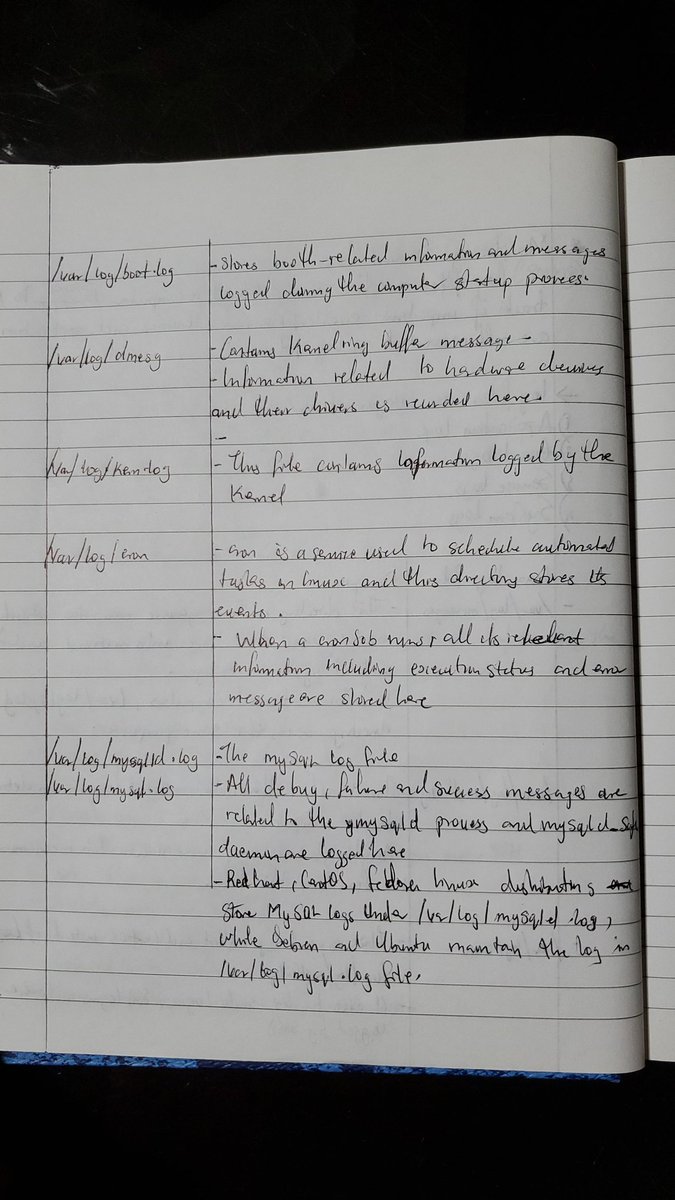 /var/log/boot.log
- Stores booth-related information and messages
logged during the computer startup process.
/var/log/dmesg
- Contains Kernel ring buffer message -
- Information related to hardware devices
and their drivers is recorded here.
-
/var/log/kern.log
- This file contains information logged by the
Kernel
/var/log/cron
- cron is a service used to schedule automated
tasks in linux and this directory stores its
events.
- When a cron Job runs, all its relevant
information including execution status and error
message are stored here
/var/log/mysqld.log
/var/log/mysql.log
- The mySQL log file
- All debug, failure and success messages are
related to the mysqld process and mysqld_
daemon are logged here
- Redhat, CentOS, fedora linux distributions
store MySQL logs under /var/log/mysqld.log,
while Debian and Ubuntu maintain the log in
/var/log/mysql.log file.